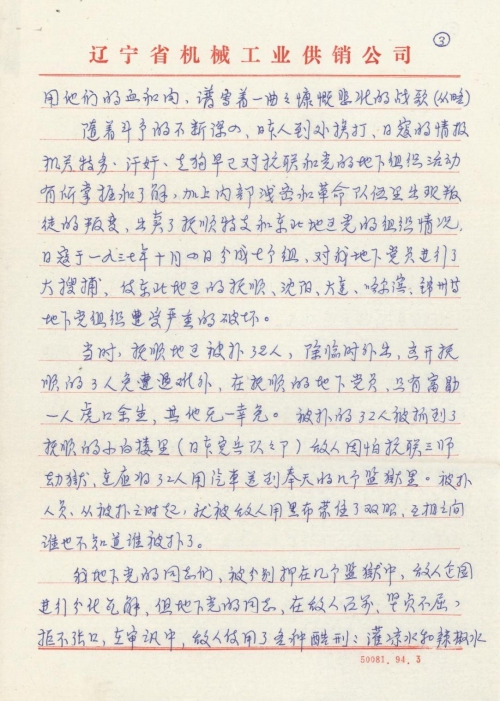 ③
辽宁省机械工业供销公司
用他们的血和肉，谱写着一曲曲慷慨悲壮的战歌（从略）
随着斗争的不断深入，日本人到处挨打，日寇的情报
机关特务、汉奸、走狗早已对抗联和党的地下组织活动
有所掌握和了解，加上内部泄密和革命队伍里出现叛
徒的叛变，出卖了抚顺特支和东北地区党的组织情况，
日寇于一九三七年十月四日分成七个组，对我地下党员进行了
大搜捕，使东北地区的抚顺、沈阳、大连、哈尔滨、锦州等
地下党组织遭受严重的破坏。
当时，抚顺地区被扑32人，除临时外出，离开抚
顺的3人免遭迫害外，在抚顺的地下党员，只有富勋
一人虎口余生，其他无一幸免。被扑的32人被抓到了
抚顺的小白楼里（日本宪兵队）敌人因怕抗联三师
劫狱，连夜将32人用汽车送到奉天的几个监狱里。被扑
人员，从被扑之时起，就被敌人用黑布蒙住了双眼，互相之间
谁也不知道谁被扑了。
我地下党的同志们，被分别押在几个监狱中，敌人企图
进行分化瓦解，但地下党的同志，在敌人面前，坚贞不屈，
拒不张口，在审讯中，敌人使用了各种酷刑：灌凉水和辣椒水
50081.94.3